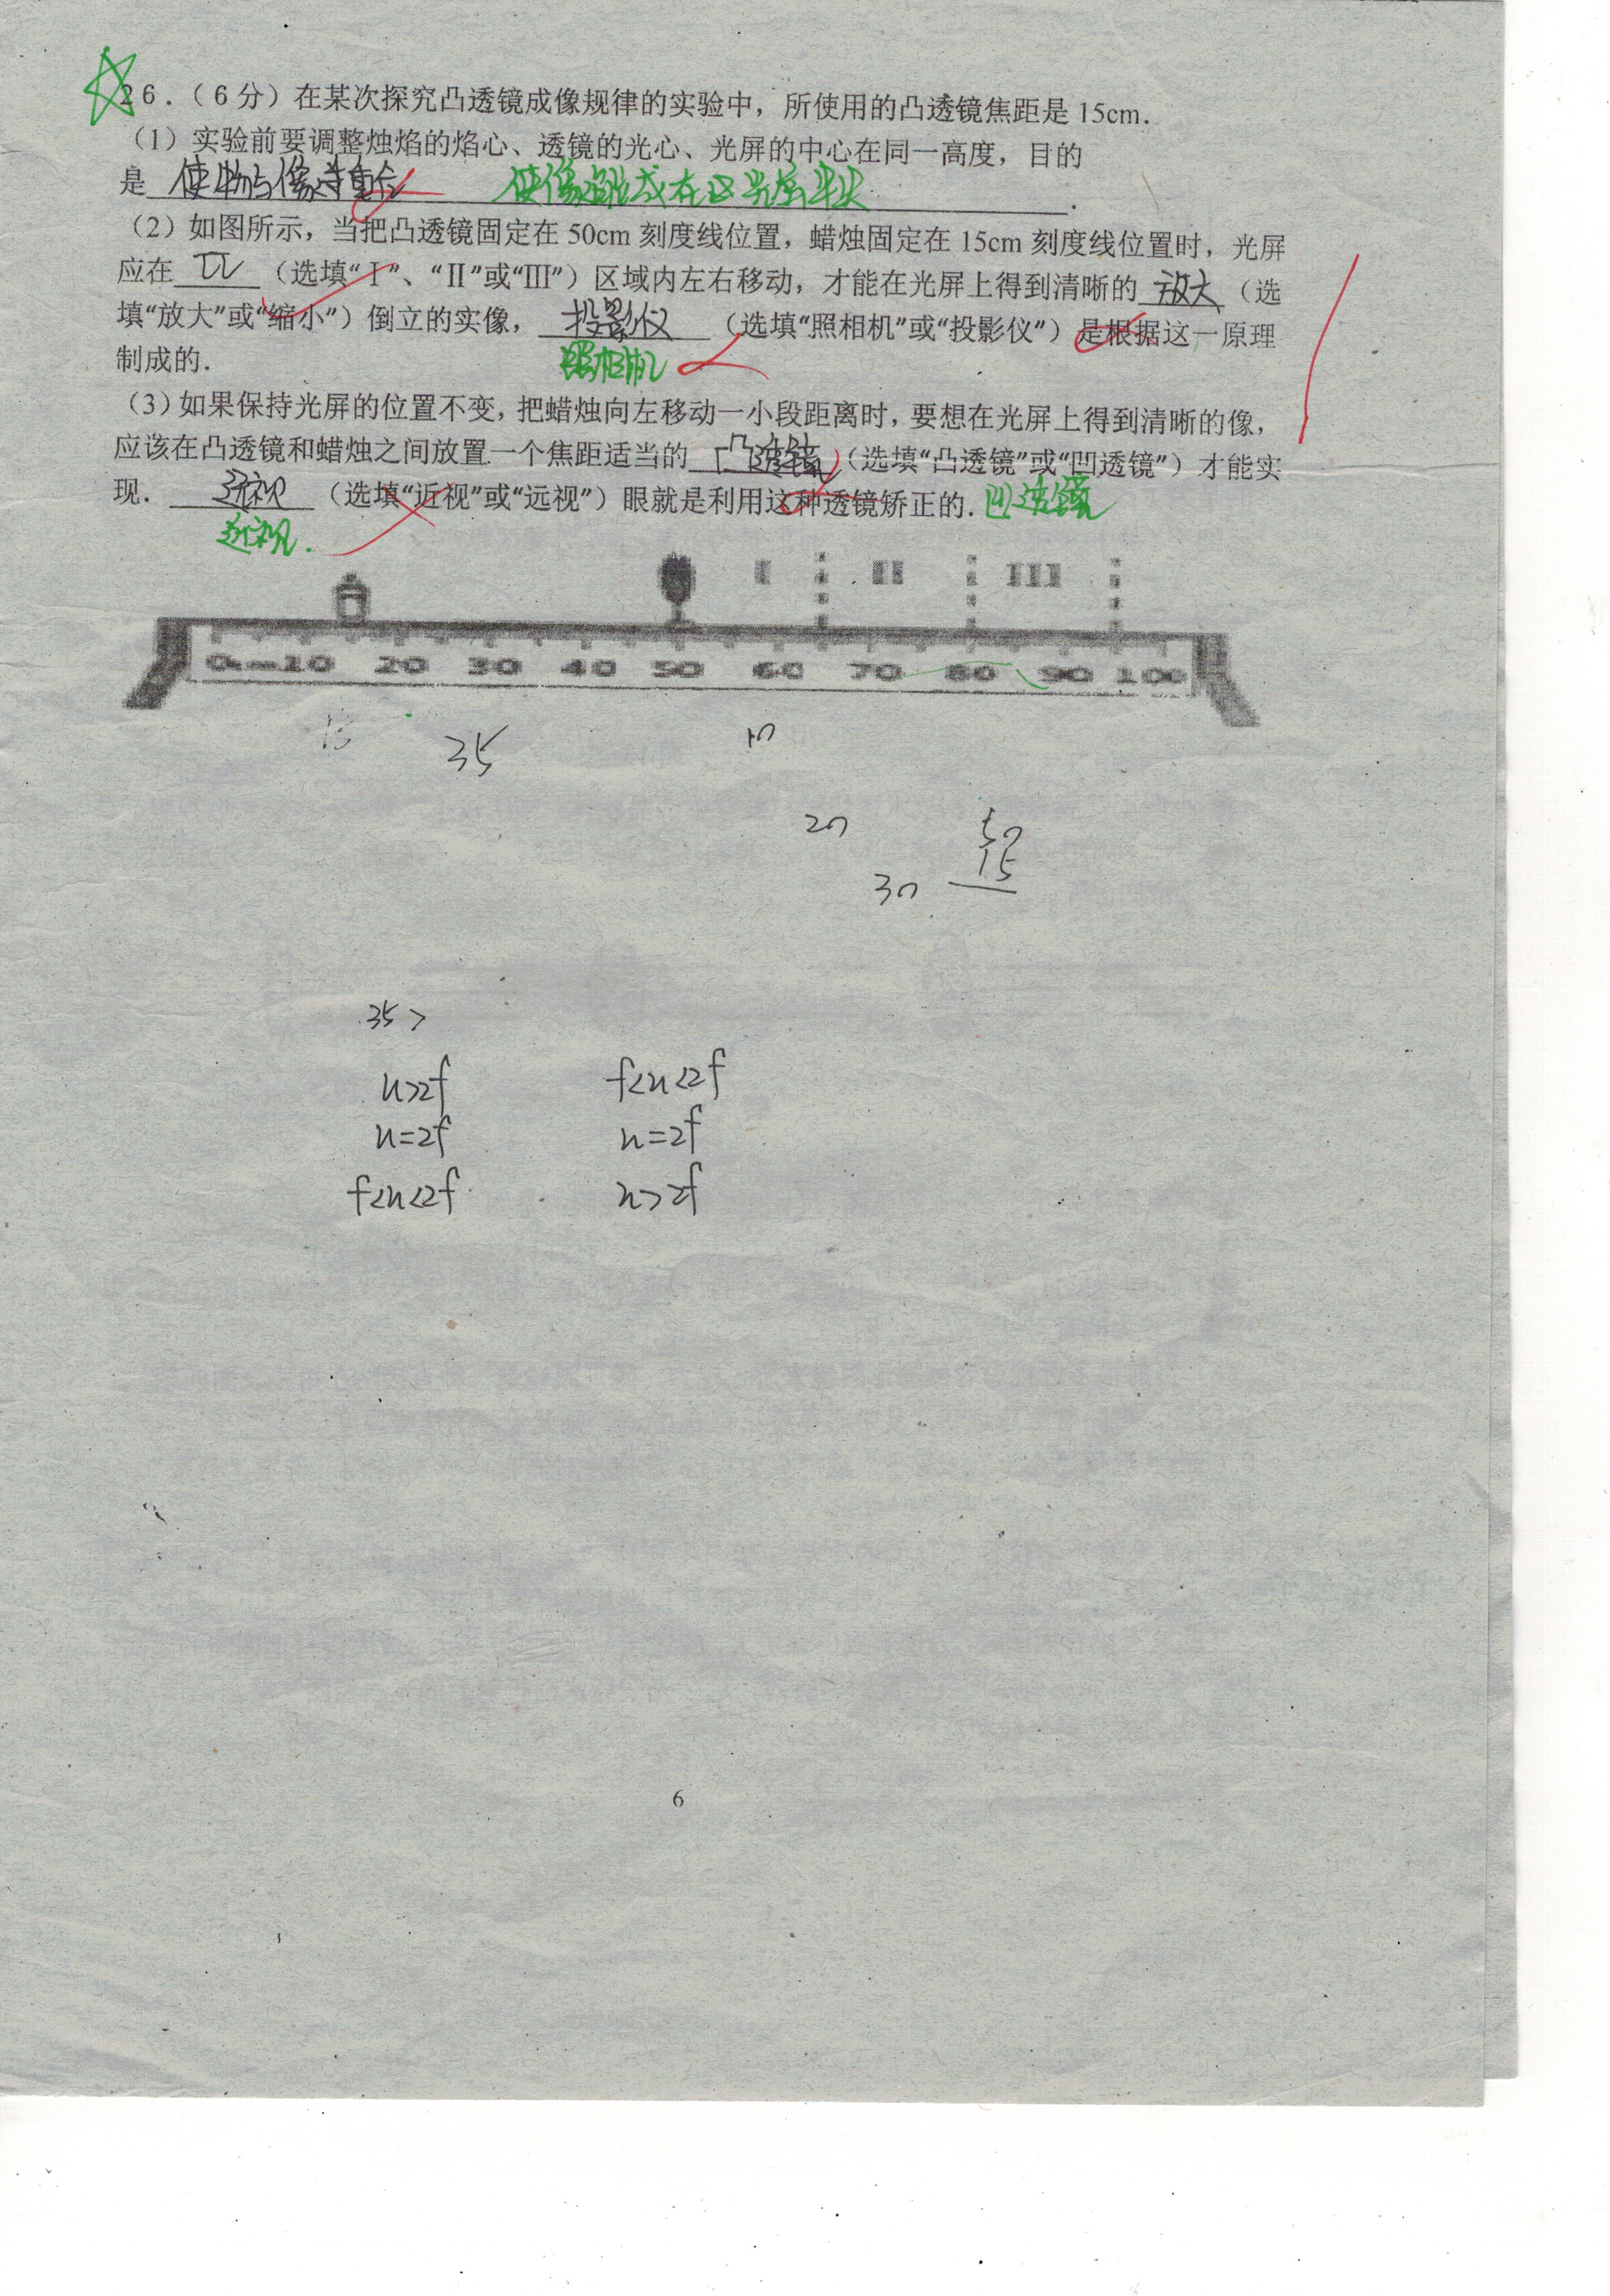 26.（6分）在某次探究凸透镜成像规律的实验中，所使用的凸透镜焦距是15cm.
（1）实验前要调整烛焰的焰心、透镜的光心、光屏的中心在同一高度，目的
是 使物与像 重合 使像 成在 光屏中央 .
（2）如图所示，当把凸透镜固定在50cm刻度线位置，蜡烛固定在15cm刻度线位置时，光屏
应在 II （选填“Ⅰ”、“Ⅱ”或“Ⅲ”）区域内左右移动，才能在光屏上得到清晰的 放大 （选
填“放大”或“缩小”）倒立的实像， 投影仪 （选填“照相机”或“投影仪”）是根据这一原理
照相机
制成的.
（3）如果保持光屏的位置不变，把蜡烛向左移动一小段距离时，要想在光屏上得到清晰的像，
应该在凸透镜和蜡烛之间放置一个焦距适当的 凸透镜 （选填“凸透镜”或“凹透镜”）才能实
现. 远视 （选填“近视”或“远视”）眼就是利用这种透镜矫正的. 凹透镜
近视.
I II III
0 10 20 30 40 50 60 70 80 90 100
15 35 10
20 50
30 15
35>
u>2f f<u<2f
u=2f u=2f
f<u<2f u>2f
6